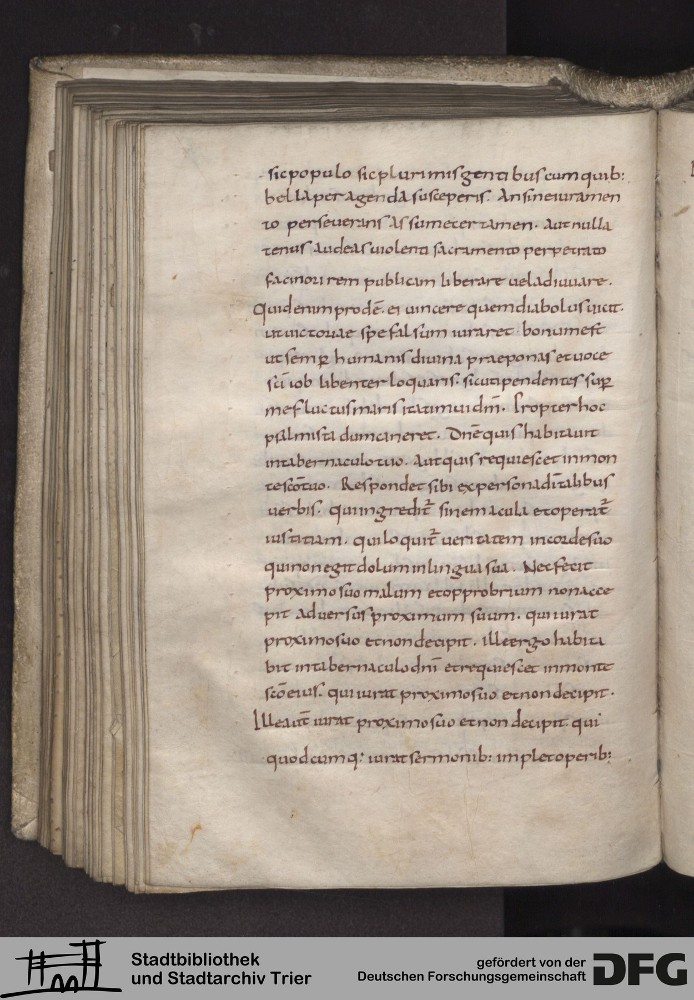 sicpopulo sicplurimisgentibuscumquib:
bellaperagendasusceperis. Ansineiuramen
to perseuerans assumecertamen. Autnulla
tenus audeasuiolenti sacramento perpetrato
facinori rem publicam liberare ueladiuuare.
Quidenimprodē. ei uincere quemdiabolusuicit.
utuictoriae spefalsum iuraret. bonumest
utsemp̄ humanis diuina praeponas etuoce
sc̄i iob libenterloquaris. sicutipendentes sup̄
mefluctusmaris itatimuidn̄m. Propterhoc
psalmista dumcaneret. Dn̄equis habitauit
intabernaculotuo. Autquisrequiescetinmon
tesc̄otuo. Respondet sibi expersonadn̄italibus
uerbis. quiingredit̄ sinemacula etoperat̄
iustitiam. quiloquit̄ ueritatem incordesuo
quinonegitdoluminlinguasua. Necfecit
proximosuomalum etopprobrium nonacce
pit aduersusproximum suum. quiiurat
proximosuo etnondecipit. illeergohabita
bit intabernaculodn̄i etrequiescet inmonte
sc̄oeius. quiiurat proximosuo etnondecipit.
Illeaut̄ iurat proximosuo etnon decipit qui
quodcumq: iuratsermonib: impletoperib:
Stadtbibliothek
und Stadtarchiv Trier
gefördert von der
Deutschen Forschungsgemeinschaft
DFG